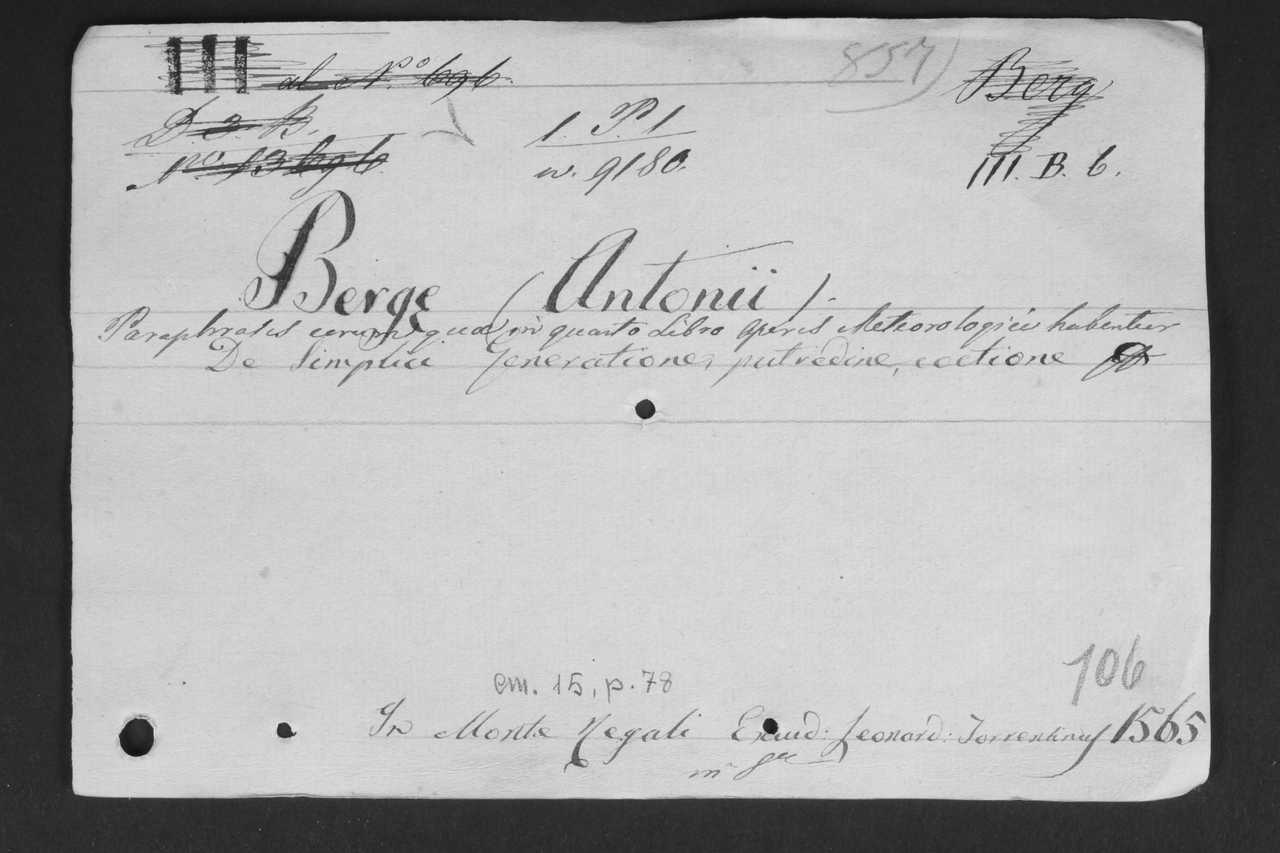 III al Nº 696
857)
Berg
D. 3. B.
1. P. 1
Nº 13696
w. 9180.
III. B. 6.
Berge (Antonii).
Paraphrasis eorum quae in quarto Libro operis Meteorologici habentur
De Simplici Generatione, putredine, coctione
106
em. 15, p. 78
In Monte Regali Excud: Leonard: Torrentinus 1565
in 8vo